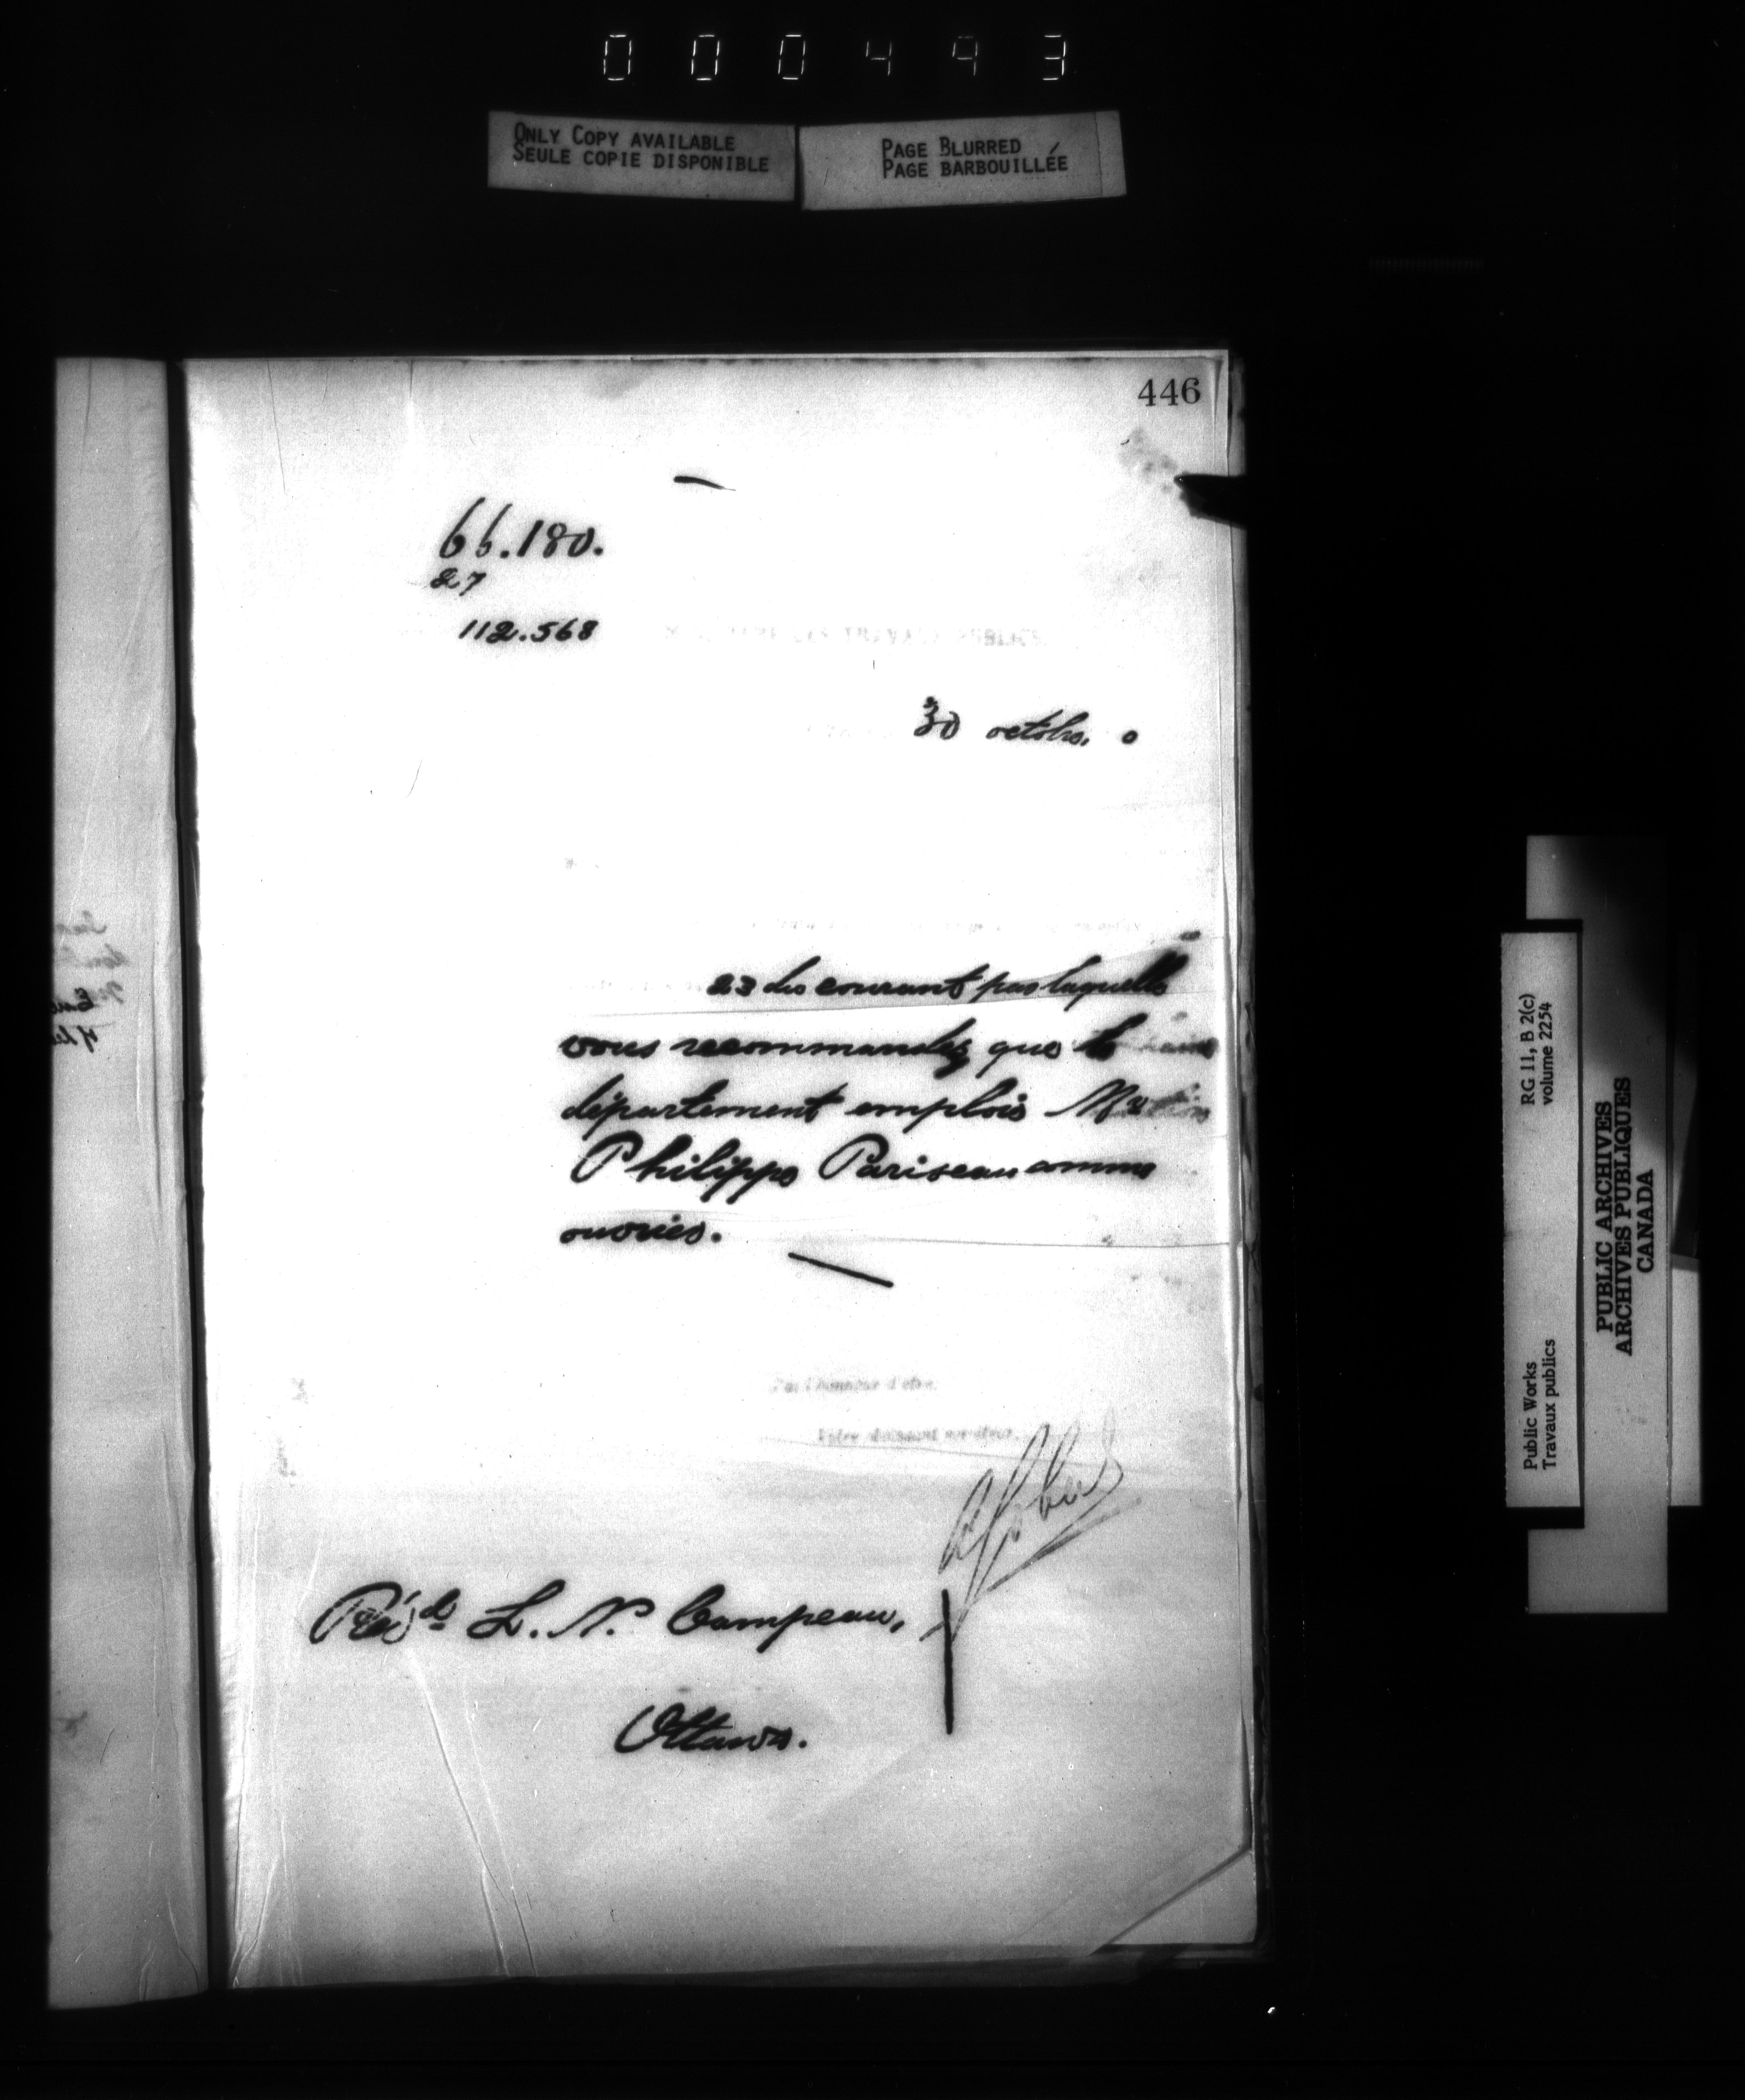 000493
ONLY COPY AVAILABLE
SEULE COPIE DISPONIBLE
PAGE BLURRED
PAGE BARBOUILLÉE
446
66.180.
27
112.568
TRAVAUX PUBLICS
30 octobre, 0
23 du courant par laquelle
vous recommandez que le
département emploie Mr
Philippe Pariseau comme
ouvrier.
J'ai l'honneur d'être,
Votre obéissant serviteur,
Révd L. N. Campeau,
Ottawa.
RG 11, B 2(c)
volume 2254
Public Works
Travaux publics
PUBLIC ARCHIVES
ARCHIVES PUBLIQUES
CANADA